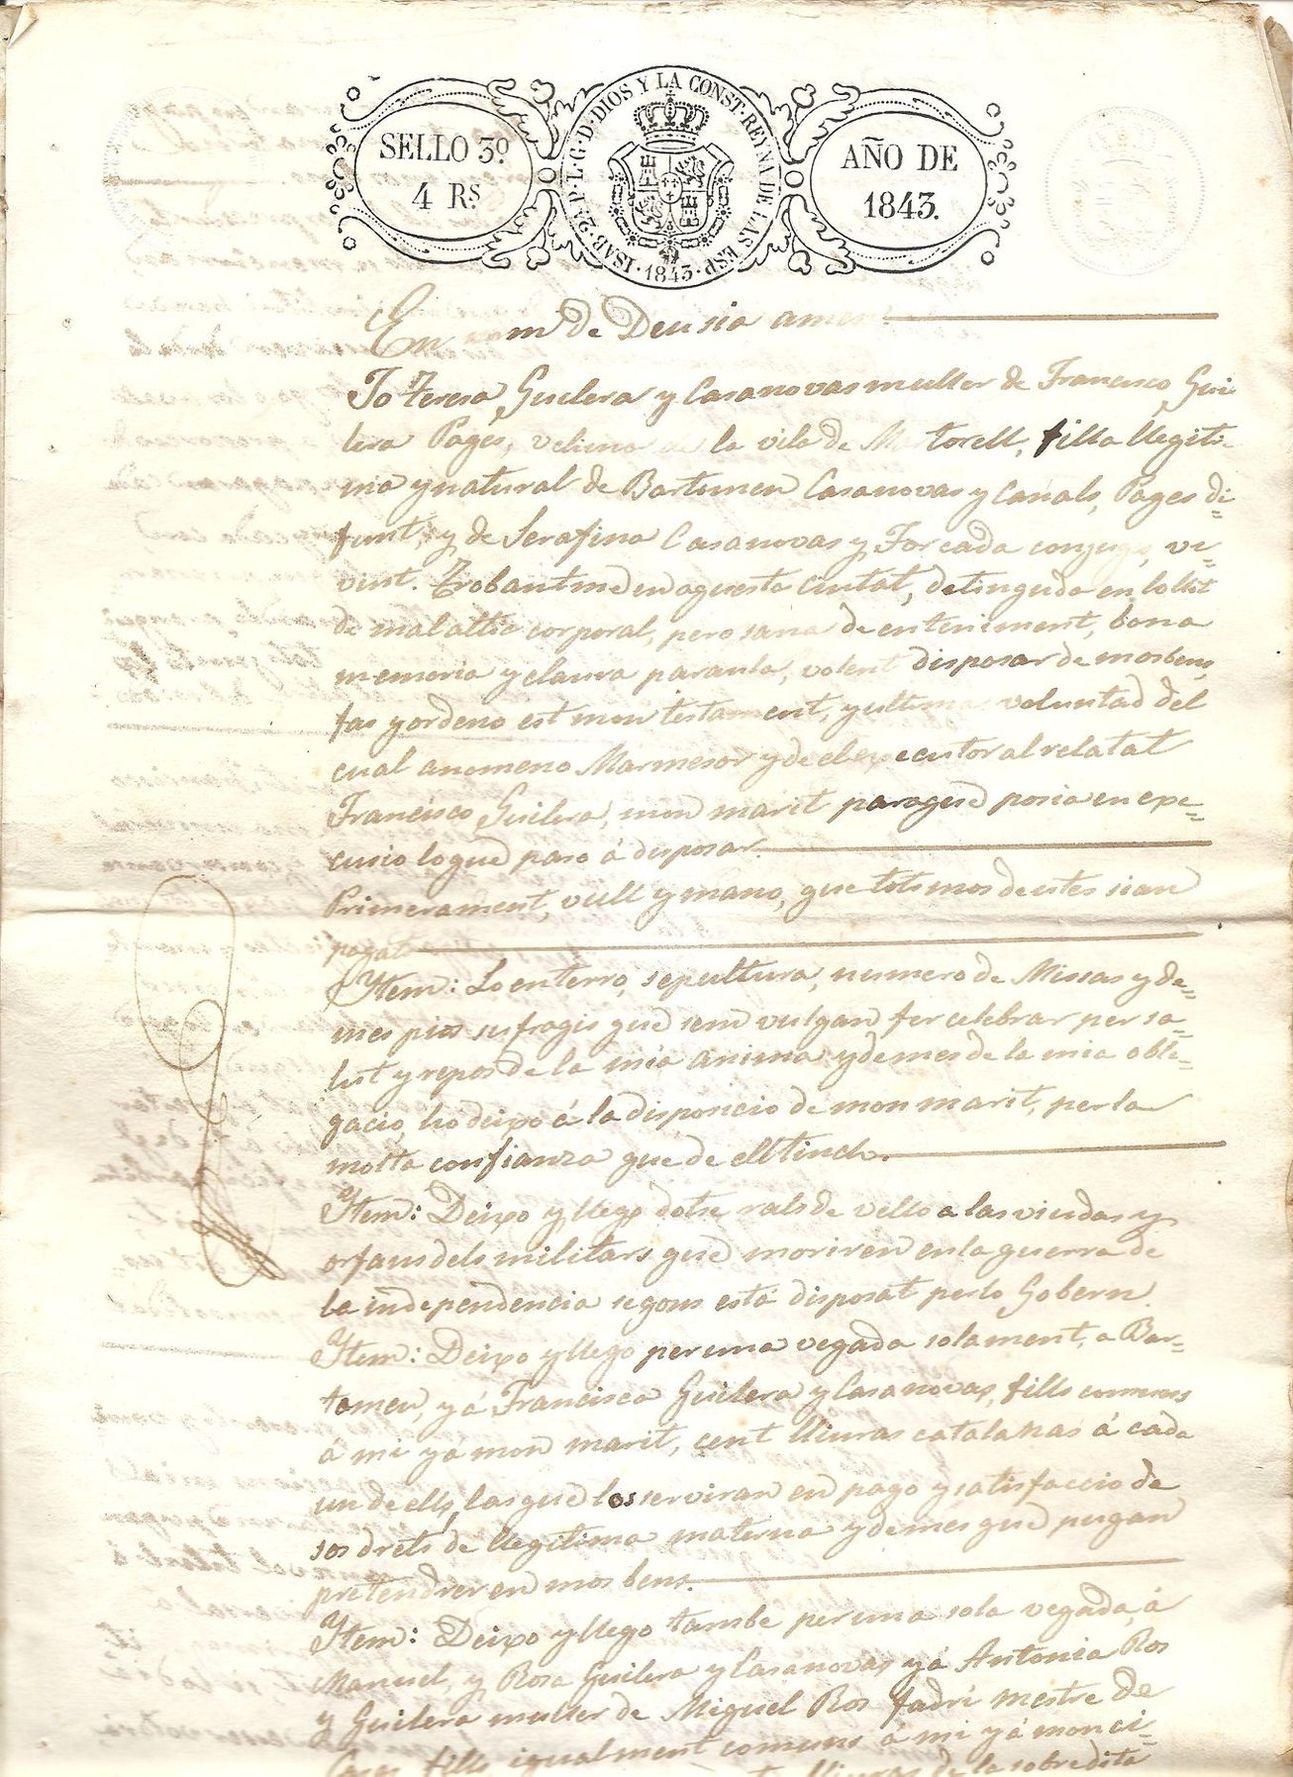 SELLO 3º
4 Rs
ISAB·2ª P·L·G·D·DIOS Y LA CONST·REYNA DE LAS ESP·1843·
AÑO DE
1843.
En nom de Deu sia amen
Jo Teresa Guilera y Casanovas muller de Francisco Gui-
lera Pagés, vehina de la vila de Martorell, filla llegiti-
ma y natural de Bartomeu Casanovas y Canals, Pages di=
funt, y de Serafina Casanovas y Forcada conjuges, vi-
vint. Trobantme en aquesta Ciutat, detinguda en lo llit
de malaltia corporal, pero sana de enteniment, bona
memoria y clara paraula, volent disposar de mos bens,
fas y ordeno est mon testament, y ultima voluntad del
cual anomeno Marmesor y de ell executor al relatat
Francisco Guilera, mon marit paraque posia en exe=
cusio lo que paso á disposar.
Primerament, vull y mano, que tots mos deutes sian
pagats
Item: Lo enterro, sepultura, numero de Missas y de=
mes pios sufragis que sem vulgan fer celebrar per sa=
lut y repos de la mia anima y demes de la mia obli=
gacio, ho deixo á la disposicio de mon marit, per la
molta confianza que de ell tinch.
Item: Deixo y llego dotse rals de velló a las viudas y
orfans dels militars que moriren en la guerra de
la independencia segons está disposat per lo Gobern.
Item: Deixo y llego per una vegada solament, a Bar=
tomeu, y á Francisca Guilera y Casanovas, fills comuns
á mi y á mon marit, cent lliuras catalanas á cada
un de ells, las que los serviran en pago y satisfaccio de
sos drets de llegitima materna y demes que pugan
pretendrer en mos bens.
Item: Deixo y llego tambe per una sola vegada, á
Manuel, y Rosa Guilera y Casanovas y á Antonia Ros
y Guilera muller de Miguel Ros fadri mestre de
Casas fills igualment comuns á mi y á mon
lliuras de la sobredita